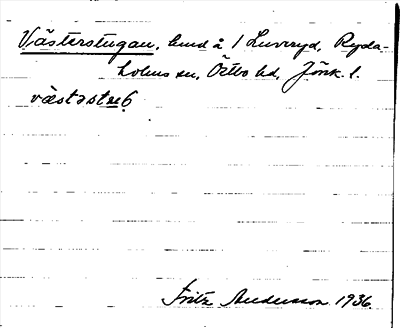 Västerstugan, lind å 1 Luveryd, Ryda-
holms sn, Östbo hd, Jönk. l.
Fritz Andersson 1936